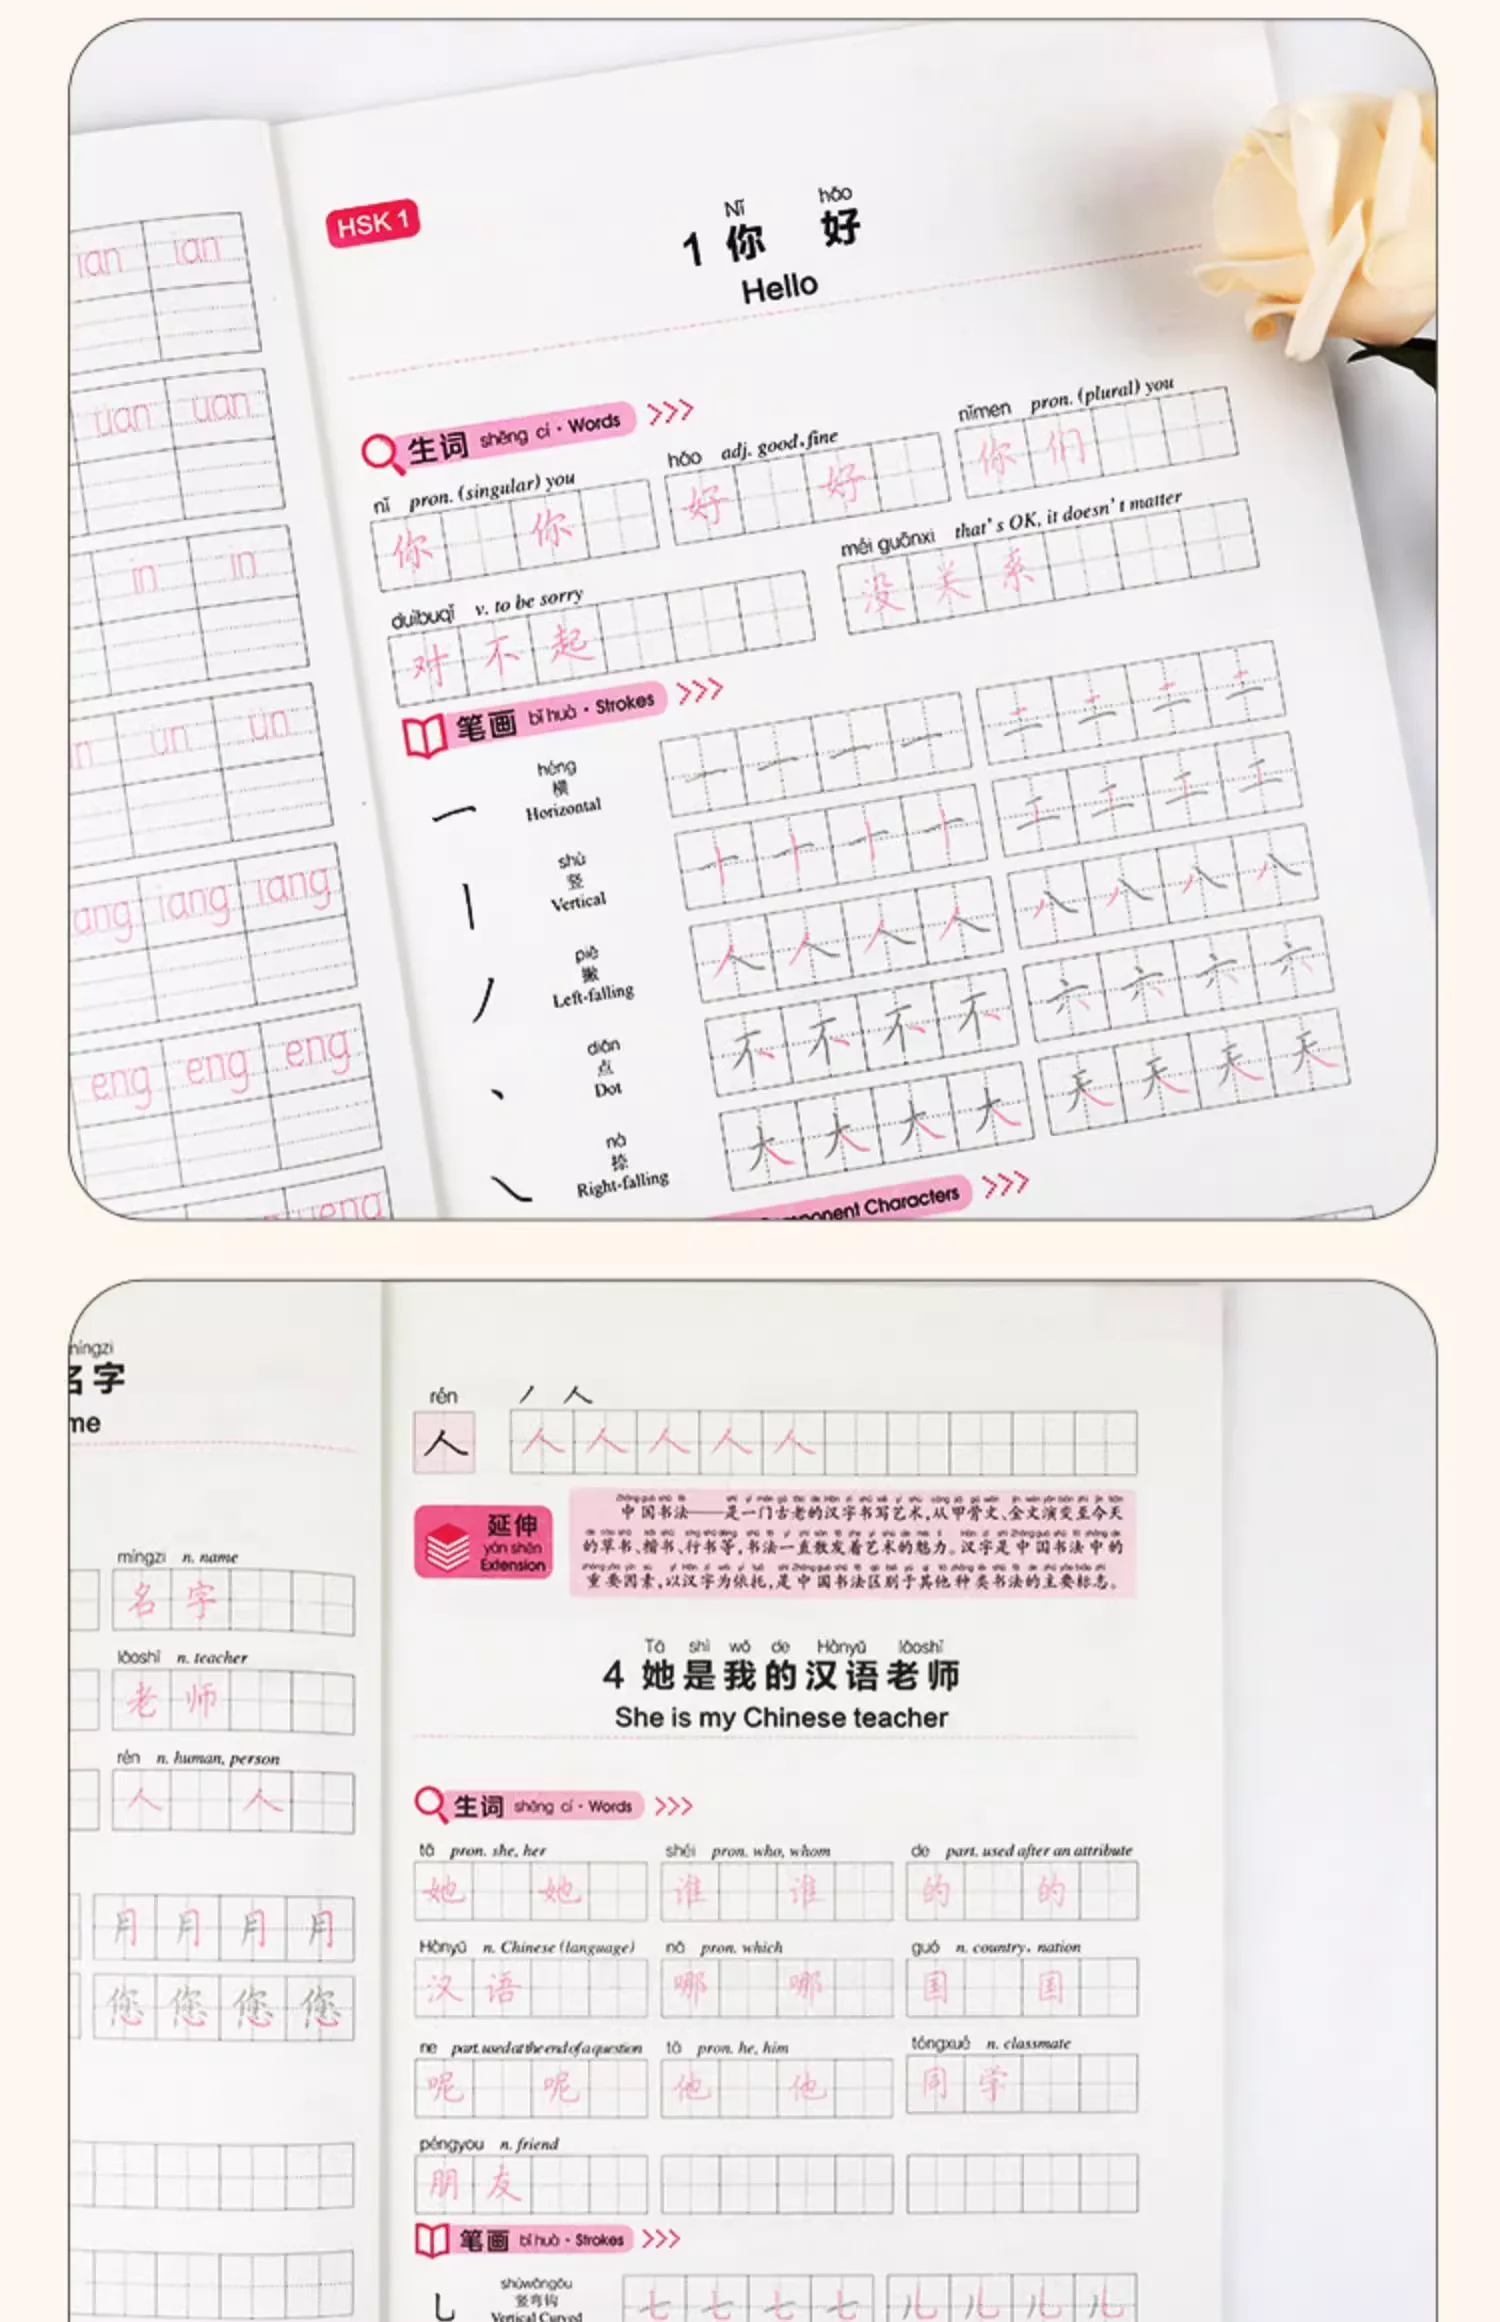 ian ian
uan uan
in in
ün ün
ang iang iang
eng eng eng
ueng
HSK 1
Nǐ hǎo
1 你 好
Hello
生词 shēng cí · Words
nǐ pron. (singular) you
你 你
hǎo adj. good, fine
好 好
nǐmen pron. (plural) you
你 们
duìbuqǐ v. to be sorry
对 不 起
méi guānxi that's OK, it doesn't matter
没 关 系
笔画 bǐ huà · Strokes
héng
横
Horizontal
一 一 一 一 二 二 二 二
shù
竖
Vertical
十 十 十 十 工 工 工 工
piě
撇
Left-falling
人 人 人 人 八 八 八 八
diǎn
点
Dot
不 不 不 不 六 六 六 六
nà
捺
Right-falling
大 大 大 大 天 天 天 天
Component Characters
míngzi
名字
me
míngzi n. name
名 字
lǎoshī n. teacher
老 师
rén n. human, person
人 人
月 月 月 月
您 您 您 您
rén
人
丿 人
人 人 人 人 人
延伸
yán shēn
Extension
中国书法——是一门古老的汉字书写艺术,从甲骨文、金文演变至今天
的草书、楷书、行书等,书法一直散发着艺术的魅力。汉字是中国书法中的
重要因素,以汉字为依托,是中国书法区别于其他种类书法的主要标志。
Tā shì wǒ de Hànyǔ lǎoshī
4 她是我的汉语老师
She is my Chinese teacher
生词 shēng cí · Words
tā pron. she, her
她 她
shéi pron. who, whom
谁 谁
de part. used after an attribute
的 的
Hànyǔ n. Chinese (language)
汉 语
nǎ pron. which
哪 哪
guó n. country, nation
国 国
ne part. used at the end of a question
呢 呢
tā pron. he, him
他 他
tóngxué n. classmate
同 学
péngyou n. friend
朋 友
笔画 bǐ huà · Strokes
shùwāngōu
竖弯钩
Vertical Curved
七 七 七 七 儿 儿 儿 儿